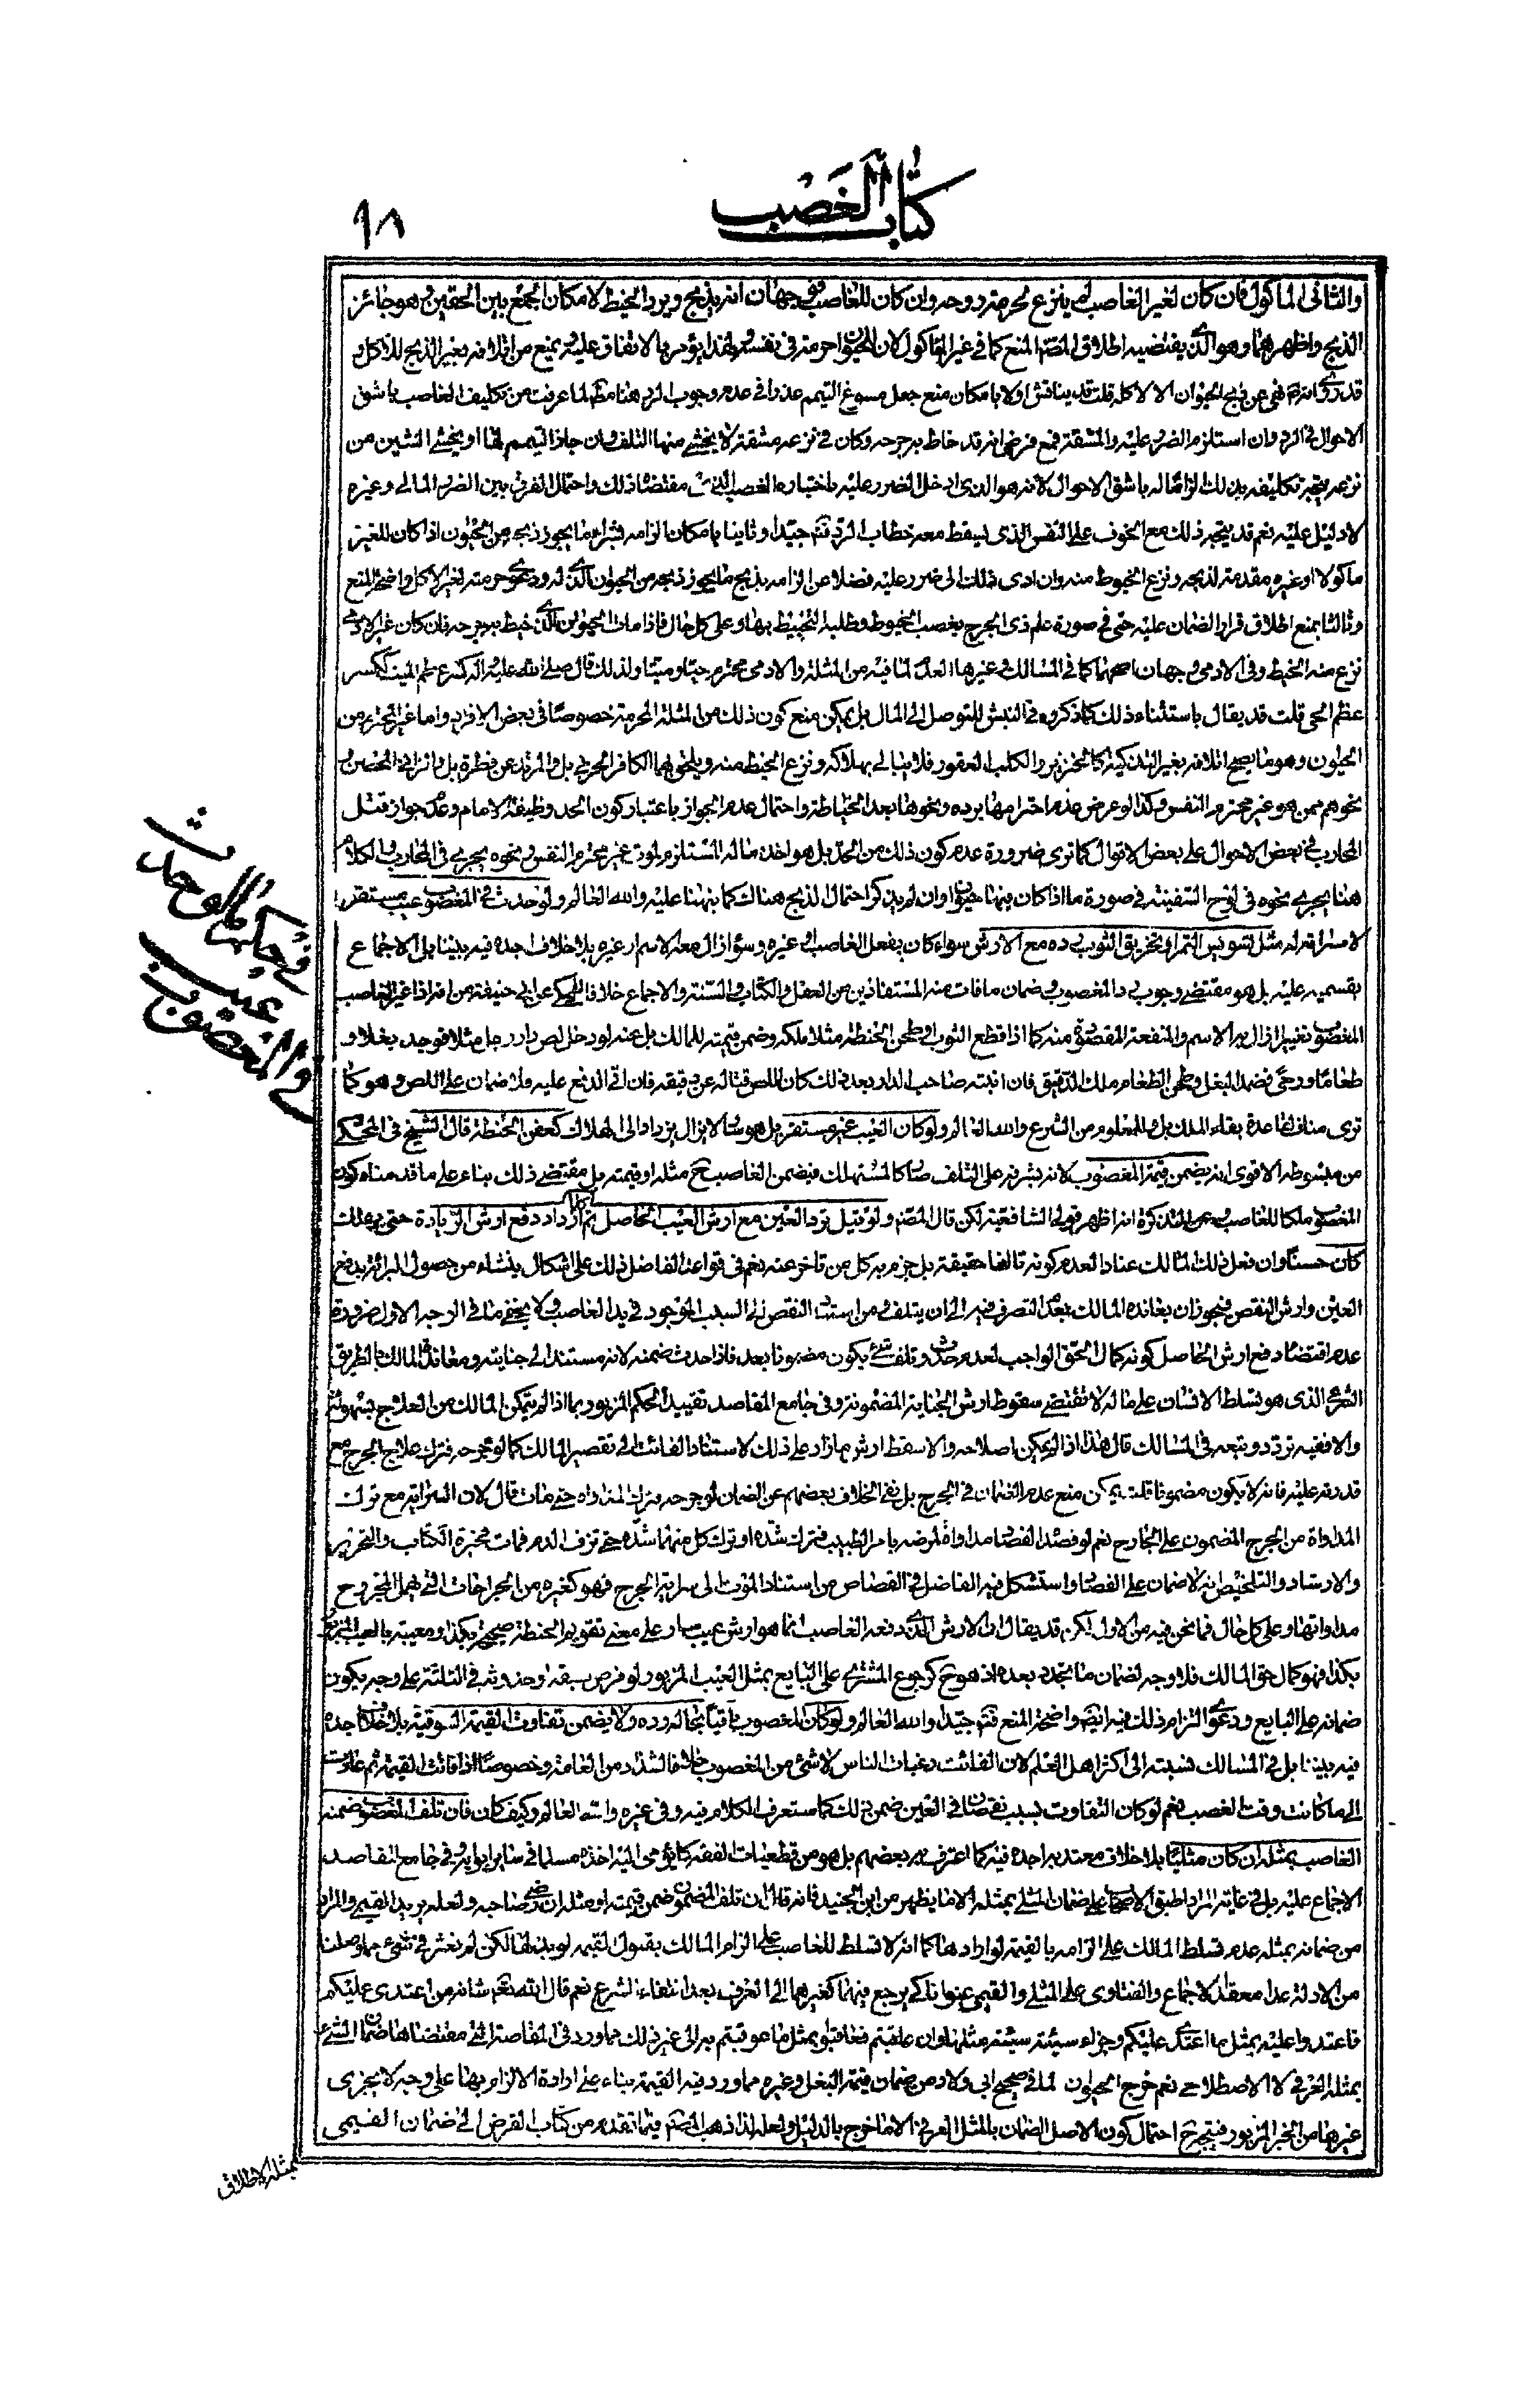 كتاب الغصب
٩٨
والثاني المأكول فان كان لغير الغاصب لم ينزع لحرمة روحه وان كان للغاصب فوجهان انه يذبح ويرد الخيط لامكان الجمع بين الحقين وهو جائز
الذبح واظهرهما وهو الذي يقتضيه اطلاق المصنف المنع كما في غير المأكول لان للحيوان حرمة في نفسه ولهذا يؤمر بالانفاق عليه ويمنع من اتلافه بغير الذبح للاكل و
قد روي انه نهى عن ذبح الحيوان الا لاكله قلت قد يناقش اولا بامكان منع جعل مسوغ التيمم عذرا في عدم وجوب الرد هنا مطلقا لما عرفت من تكليف الغاصب باشق
الاحوال في الرد وان استلزم الضرر عليه والمشقة فمع فرض انه قد خاط به جرحه وكان في نزعه مشقة لا يخشى منها التلف وان جاز التيمم لها او يخشى الشين من
نزعه يتجه تكليفه بذلك الزاما له باشق الاحوال لانه هو الذي ادخل الضرر عليه باختياره الغصب الذي مقتضاه ذلك واحتمال الفرق بين الضرر المالي وغيره
لا دليل عليه نعم قد يتجه ذلك مع الخوف على النفس الذي يسقط معه خطاب الرد فتأمل جيدا وثانيا بامكان الزامه بشراء ما يجوز ذبحه من الحيوان اذا كان للغير
مأكولا او غيره مقدمة لذبحه ونزع الخيوط منه وان ادى ذلك الى ضرر عليه فضلا عن الزامه بذبح ما يجوز ذبحه من الحيوان الذي له ودعوى حرمته لغير الاكل واضحة المنع
وثالثا بمنع اطلاق قرار الضمان عليه حتى في صورة علم ذي الجرح بغصب الخيوط وطلبه التخييط بها وعلى كل حال فاذا مات الحيوان الذي خيط به جرحه فان كان غير الادمي
نزع منه الخيط وفي الادمي وجهان اصحهما كما في المسالك وغيرها العدم لما فيه من المثلة والادمي محترم حيا وميتا ولذلك قال صلى الله عليه واله كسر عظم الميت ككسر
عظم الحي قلت قد يقال باستثناء ذلك كما ذكروه في النبش للتوصل الى المال بل يمكن منع كون ذلك من المثلة المحرمة خصوصا في بعض الافراد واما غير المحترم من
الحيوان وهو ما يصح اتلافه بغير التذكية كالخنزير والكلب العقور فلا يبالى بهلاكه ونزع الخيط منه ويلحق بهما الكافر الحربي بل والمرتد عن فطرة بل والزاني المحصن و
نحوهم ممن هو غير محترم النفس وكذا لو عرض عدم احترامها بردة ونحوها بعد الخياطة واحتمال عدم الجواز باعتبار كون الحد وظيفة الامام وعدم جواز قتل
المحارب في بعض الاحوال على بعض الاقوال كما ترى ضرورة عدم كون ذلك من الحد بل هو اخذ ماله المستلزم لموت غير محترم النفس ونحوه يجري في المحارب والكلام
هنا يجري نحوه في لوح السفينة في صورة ما اذا كان فيها حيوان وان لم يذكر احتمال الذبح هناك كما نبهنا عليه والله العالم ولو حدث في المغصوب عيب مستقر
لا سراية له مثل تسويس التمر او تخريق الثوب رده مع الارش سواء كان بفعل الغاصب او غيره وسواء زال معه الاسم او غيره بلا خلاف اجده فيه بيننا بل الاجماع
بقسميه عليه بل هو مقتضى وجوب رد المغصوب وضمان ما فات منه المستفادين من العقل والكتاب والسنة والاجماع خلافا للمحكي عن ابي حنيفة من انه اذا غير الغاصب
المغصوب تغييرا زال به الاسم والمنفعة المقصودة منه كما اذا قطع الثوب او طحن الحنطة مثلا ملكه وضمن قيمته للمالك بل عنه لو دخل لص دار رجل مثلا فوجد بغلا و
طعاما ورحى فضمد البغل وطحن الطعام ملك الدقيق فان انتبه صاحب الدار بعد ذلك كان للص قتاله عن دقيقه فان اتى الدفع عليه فلا ضمان على اللص وهو كما
ترى مناف لقاعدة بقاء الملك بل والمعلوم من الشرع والله العالم ولو كان العيب غير مستقر بل هو سار لا يزال يزداد الى الهلاك كعفن الحنطة قال الشيخ في المحكي
من مبسوطه الاقوى انه يضمن قيمة المغصوب لانه بشرفه على التلف صار كالمستهلك فيضمن الغاصب ح مثله او قيمته بل مقتضى ذلك بناء على ما قدمناه كون
المغصوب ملكا للغاصب وعن التذكرة انه اظهر قولي الشافعية لكن قال المصنف ولو قيل يرد العين مع ارش العيب الحاصل ثم كلما ازداد دفع ارش الزيادة حتى يهلك
كان حسنا وان فعل ذلك المالك عنادا لعدم كونه تالفا حقيقة بل جزم به كل من تاخر عنه نعم في قواعد الفاضل ذلك على اشكال ينشاء من حصول البرائة بدفع
العين وارش النقص فيجوز ان يعانده المالك بعدم التصرف فيه الى ان يتلف ومن استناد النقص الى السبب الموجود في يد الغاصب ولا يخفى ما في الوجه الاول ضرورة
عدم اقتضاء دفع ارش الحاصل كونه كمال الحق الواجب لعدم حدوث وتلف شيء يكون مضمونا بعد فاذا حدث ضمنه لانه مستند الى جنايته ومعاندة المالك بالطريق
الشرعي الذي هو تسلط الانسان على ماله لا تقتضي سقوط ارش الجناية المضمونة وفي جامع المقاصد تقييد الحكم المزبور بما اذا لم يتمكن المالك من العلاج بسهولة
والا ففيه تردد وتبعه في المسالك قال هذا اذا لم يمكن اصلاحه والا سقط ارش ما زاد على ذلك لاستناد الفائت الى تقصير المالك كما لو جرحه فترك علاج الجرح مع
قدرته عليه فانه لا يكون مضمونا قلت يمكن منع عدم الضمان في الجرح بل نفى الخلاف بعضهم عن الضمان لو جرحه فترك المداواة حتى مات قال لان السراية مع ترك
المداواة من الجرح المضمون على الجارح نعم لو فصد الفصاد مداواة لمرضه بامر الطبيب فترك شده او ترك كل منهما شده حتى نزف الدم فمات فخيرة الكتاب والتحرير
والارشاد والتلخيص انه لا ضمان على الفصاد واستشكل فيه الفاضل في القصاص من استناد الموت الى سراية الجرح فهو كغيره من الجراحات التي يهمل المجروح
مداواتها وعلى كل حال فما نحن فيه من الاول لكن قد يقال ان الارش الذي دفعه الغاصب انما هو ارش عيب سار على معنى تقويم الحنطة صحيحة بكذا ومعيبة بالعيب المزبور
بكذا فهو كمال حق المالك فلا وجه لضمان ما يتجدد بعده اذ هو ح كرجوع المشتري على البايع بمثل العيب المزبور لو فرض سبقه او حدوثه في الثلثة على وجه يكون
ضمانه على البايع ودعوى التزام ذلك فيه ايضا واضحة المنع فتأمل جيدا والله العالم ولو كان المغصوب باقيا بحاله رده ولا يضمن تفاوت القيمة السوقية بلا خلاف اجده
فيه بيننا بل في المسالك نسبته الى اكثر اهل العلم لان الفائت رغبات الناس لا شئ من المغصوب خلافا لشذوذ من العامة وخصوصا اذا فاتت القيمة ثم عادت
الى ما كانت وقت الغصب نعم لو كان التفاوت بسبب نقصان في العين ضمن ذلك كما ستعرف الكلام فيه وفي غيره والله العالم وكيف كان فان تلف المغصوب ضمنه
الغاصب بمثله ان كان مثليا بلا خلاف معتد به اجده فيه كما اعترف به بعضهم بل هو من قطعيات الفقه كما يومى اليه اخذه مسلما في ساير ابوابه وفي جامع المقاصد
الاجماع عليه بل في غاية المراد اطبق الاصحاب على ضمان المثلي بمثله الا ما يظهر من ابن الجنيد فانه قال ان تلف المضمون ضمن قيمته او مثله ان رضي صاحبه ولعله يريد القيمي والمراد
من ضمانه بمثله عدم تسلط المالك على الزامه بالقيمة لو ارادها كما انه لا تسلط للغاصب على الزام المالك بقبول القيمة لو بذلها لكن لم نعثر في شيء مما وصلنا
من الادلة عدا معقد الاجماع والفتاوى على المثلي والقيمي عنوانا كي يرجع فيهما كغيرهما الى العرف بعد انتفاء الشرع نعم قال الله تعالى شانه من اعتدى عليكم
فاعتدوا عليه بمثل ما اعتدى عليكم وجزاء سيئة سيئة مثلها وان عاقبتم فعاقبوا بمثل ما عوقبتم به الى غير ذلك مما ورد في المقاصة التي مقتضاها ضمان الشيء
بمثله العرفي لا الاصطلاحي نعم خرج الحيوان لما في صحيح ابي ولاد من ضمان قيمة البغل وغيره مما ورد فيه القيمة بناء على ارادة الالزام بها على وجه لا يجزي
غيرها من الخبر المزبور فيتجه ح احتمال كون الاصل الضمان بالمثل العرفي الا ما خرج بالدليل ولعله لذا ذهب المصنف فيما تقدم من كتاب القرض الى ضمان القيمي
بمثله لاطلاق
في حكم ما لو حدث
في المغصوب عيب